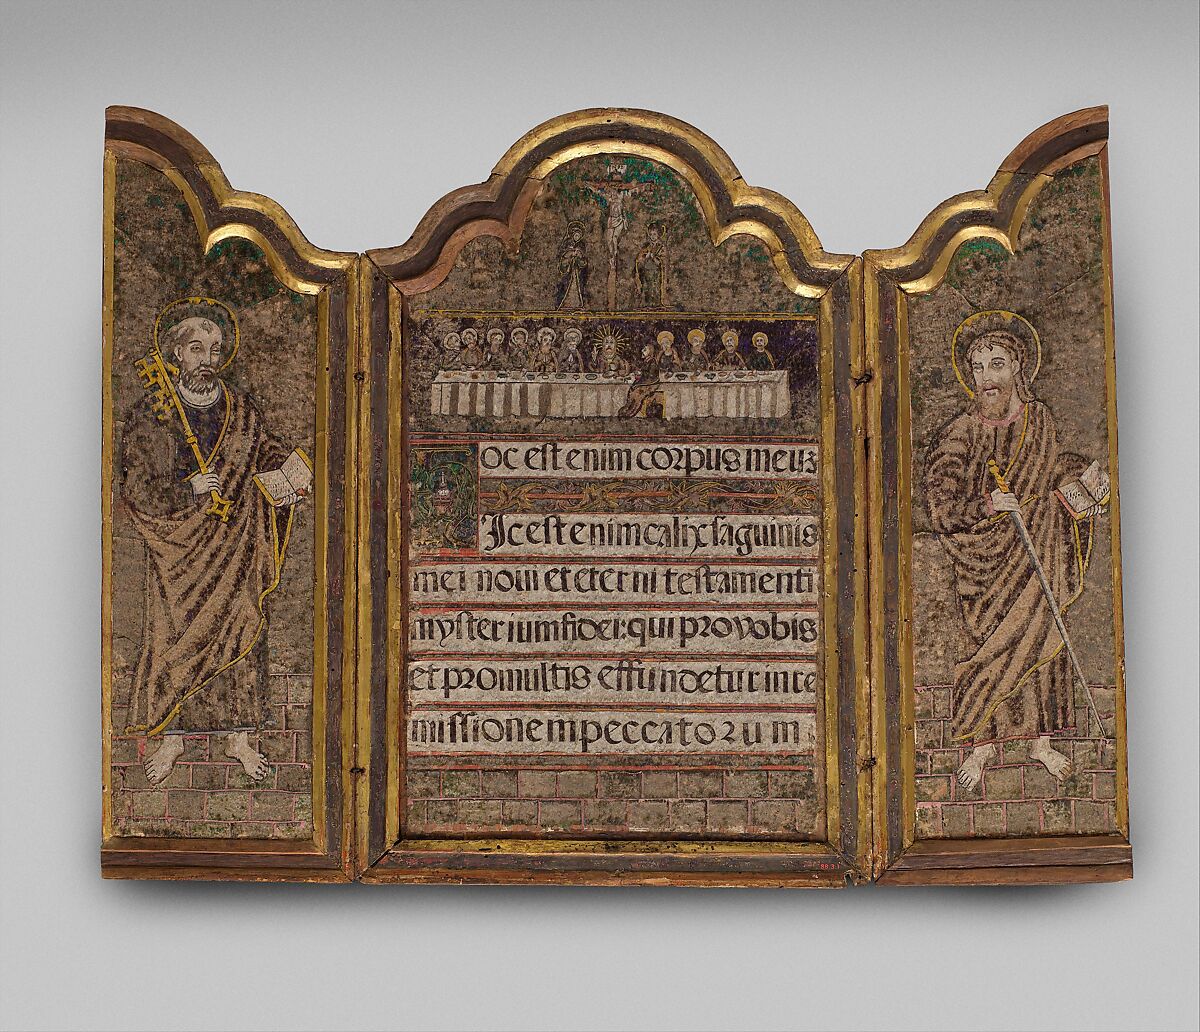 INRI
oc est enim corpus meuz
Ic est enim calix saguinis
mei noui et eterni testamenti
mysterium fidei: qui pro vobis
et pro multis effundetur in re
missionem peccatorum
88.3.